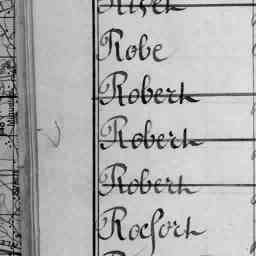 Robe
Robert
Robert
Robert
Rocfort